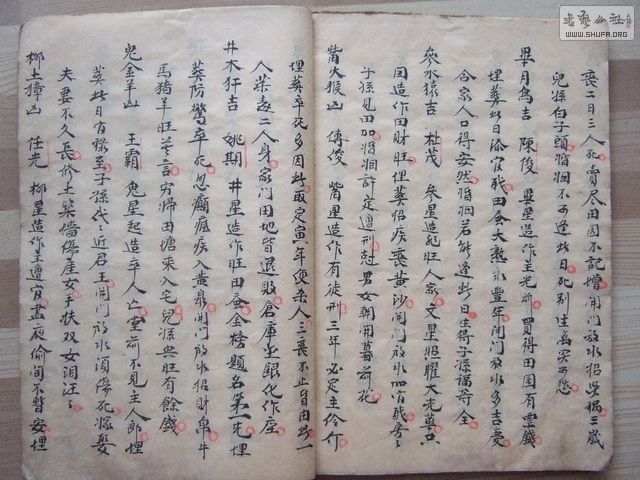 喪三日三人死賣尽田园不記增開門放水招災禍三歲
兒孫白子頭婚姻不可逢此日死别生离实可愁
畢月烏吉 陳俊 畢星造作主光前買得田园有粟錢
埋葬此日添官職田蚕大熟永豊年開門放水多吉慶
合家人口得安然婚姻若能逢此日生得子孫福寿全
參水猿吉 杜茂 參星造作旺人家文星照耀大光華只
因造作田財旺埋葬招疾喪黄沙開門放水加官職房々
子孫見田加婚姻許定遭刑尅男女朝開暮落花
觜火猴凶 傅俊 觜星造作有徒刑三年必定主伶仃
埋葬卒死多因此取定寅年便杀人三喪不止皆由此一
人葬毒二人身家門田地皆退敗倉庫金銀化作塵
井木犴吉 姚期 井星造作旺田蚕金榜題名第一先埋
葬防驚卒死忽癲瘋疾入黄泉開門放水招財帛牛
馬猪羊旺莫言寡婦田塘来入宅兒孫興旺有餘錢
鬼金羊凶 王霸 鬼星起造卒人亡堂前不見主人郎埋
葬此日官祿至子孫代々近君王開門放水須傷死嫁娶
夫妻不久長修土築墻傷産女手扶双女泪汪々
柳土獐凶 任光 柳星造作主遭官晝夜偷閒不暫安埋
書艺公社
WWW.SHUFA.ORG